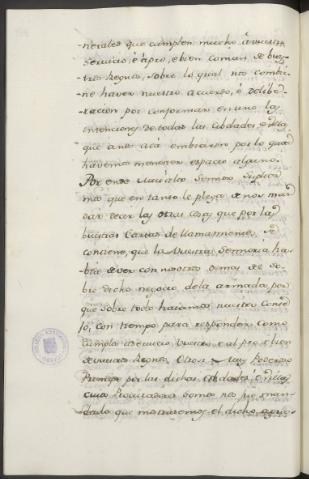 nerales que cumplen mucho á vuestro
servicio, é á pro, é bien comun de vues-
tros Regnos, sobre lo qual nos convie-
ne haver nuestro acuerdo, é delibe-
racion por conformar en uno las
intenciones de todas las Cibdades, é villas
que á nos acá embiaron por lo qual
havemos menester espacio alguno.
Por ende mui alto Sennor suplica-
mos que en tanto le plega de nos man-
dar decir las otras cosas que por las
vuestras Cartas de llamamiento, se
contiene, que la Vuestra Sennoria ha-
bia de ver con nosotros demas de so-
bre dicho negocio de la armada, por
que sobre todo hayamos nuestro Conse-
jo, con tiempo para responder como
cumpla á servicio Vuestro é al pro, é bien
de vuestros Regnos. Otrosi mui Poderoso
Principe por las dichas cibdades é villas
cuios Procuradores somos nos fue man-
dado que mostrasemos el dicho agra-